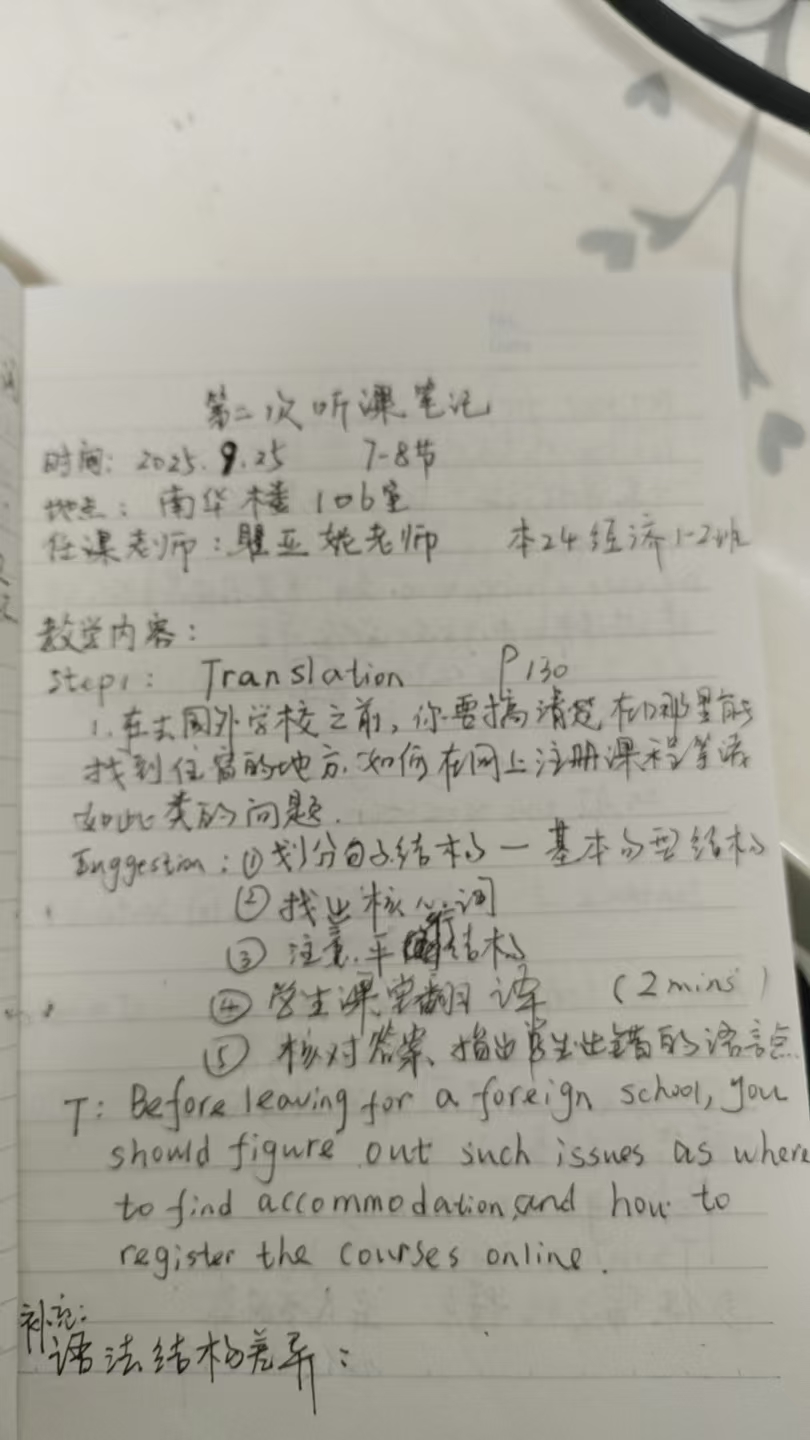 第二次听课笔记
时间：2025.9.25 7-8节
地点：南华楼106室
任课老师：瞿亚妮老师 本24经济1-2班
教学内容：
Step1: Translation P130
1.在去国外学校之前，你要搞清楚在哪里能
找到住宿的地方，如何在网上注册课程等诸
如此类的问题．
Suggestion：①划分句子结构－基本句型结构
②找出核心词
③注意平行结构
④学生课堂翻译 (2mins)
⑤核对答案、指出学生出错的语言点
T: Before leaving for a foreign school, you
should figure out such issues as where
to find accommodation, and how to
register the courses online.
补充：
语法结构差异：